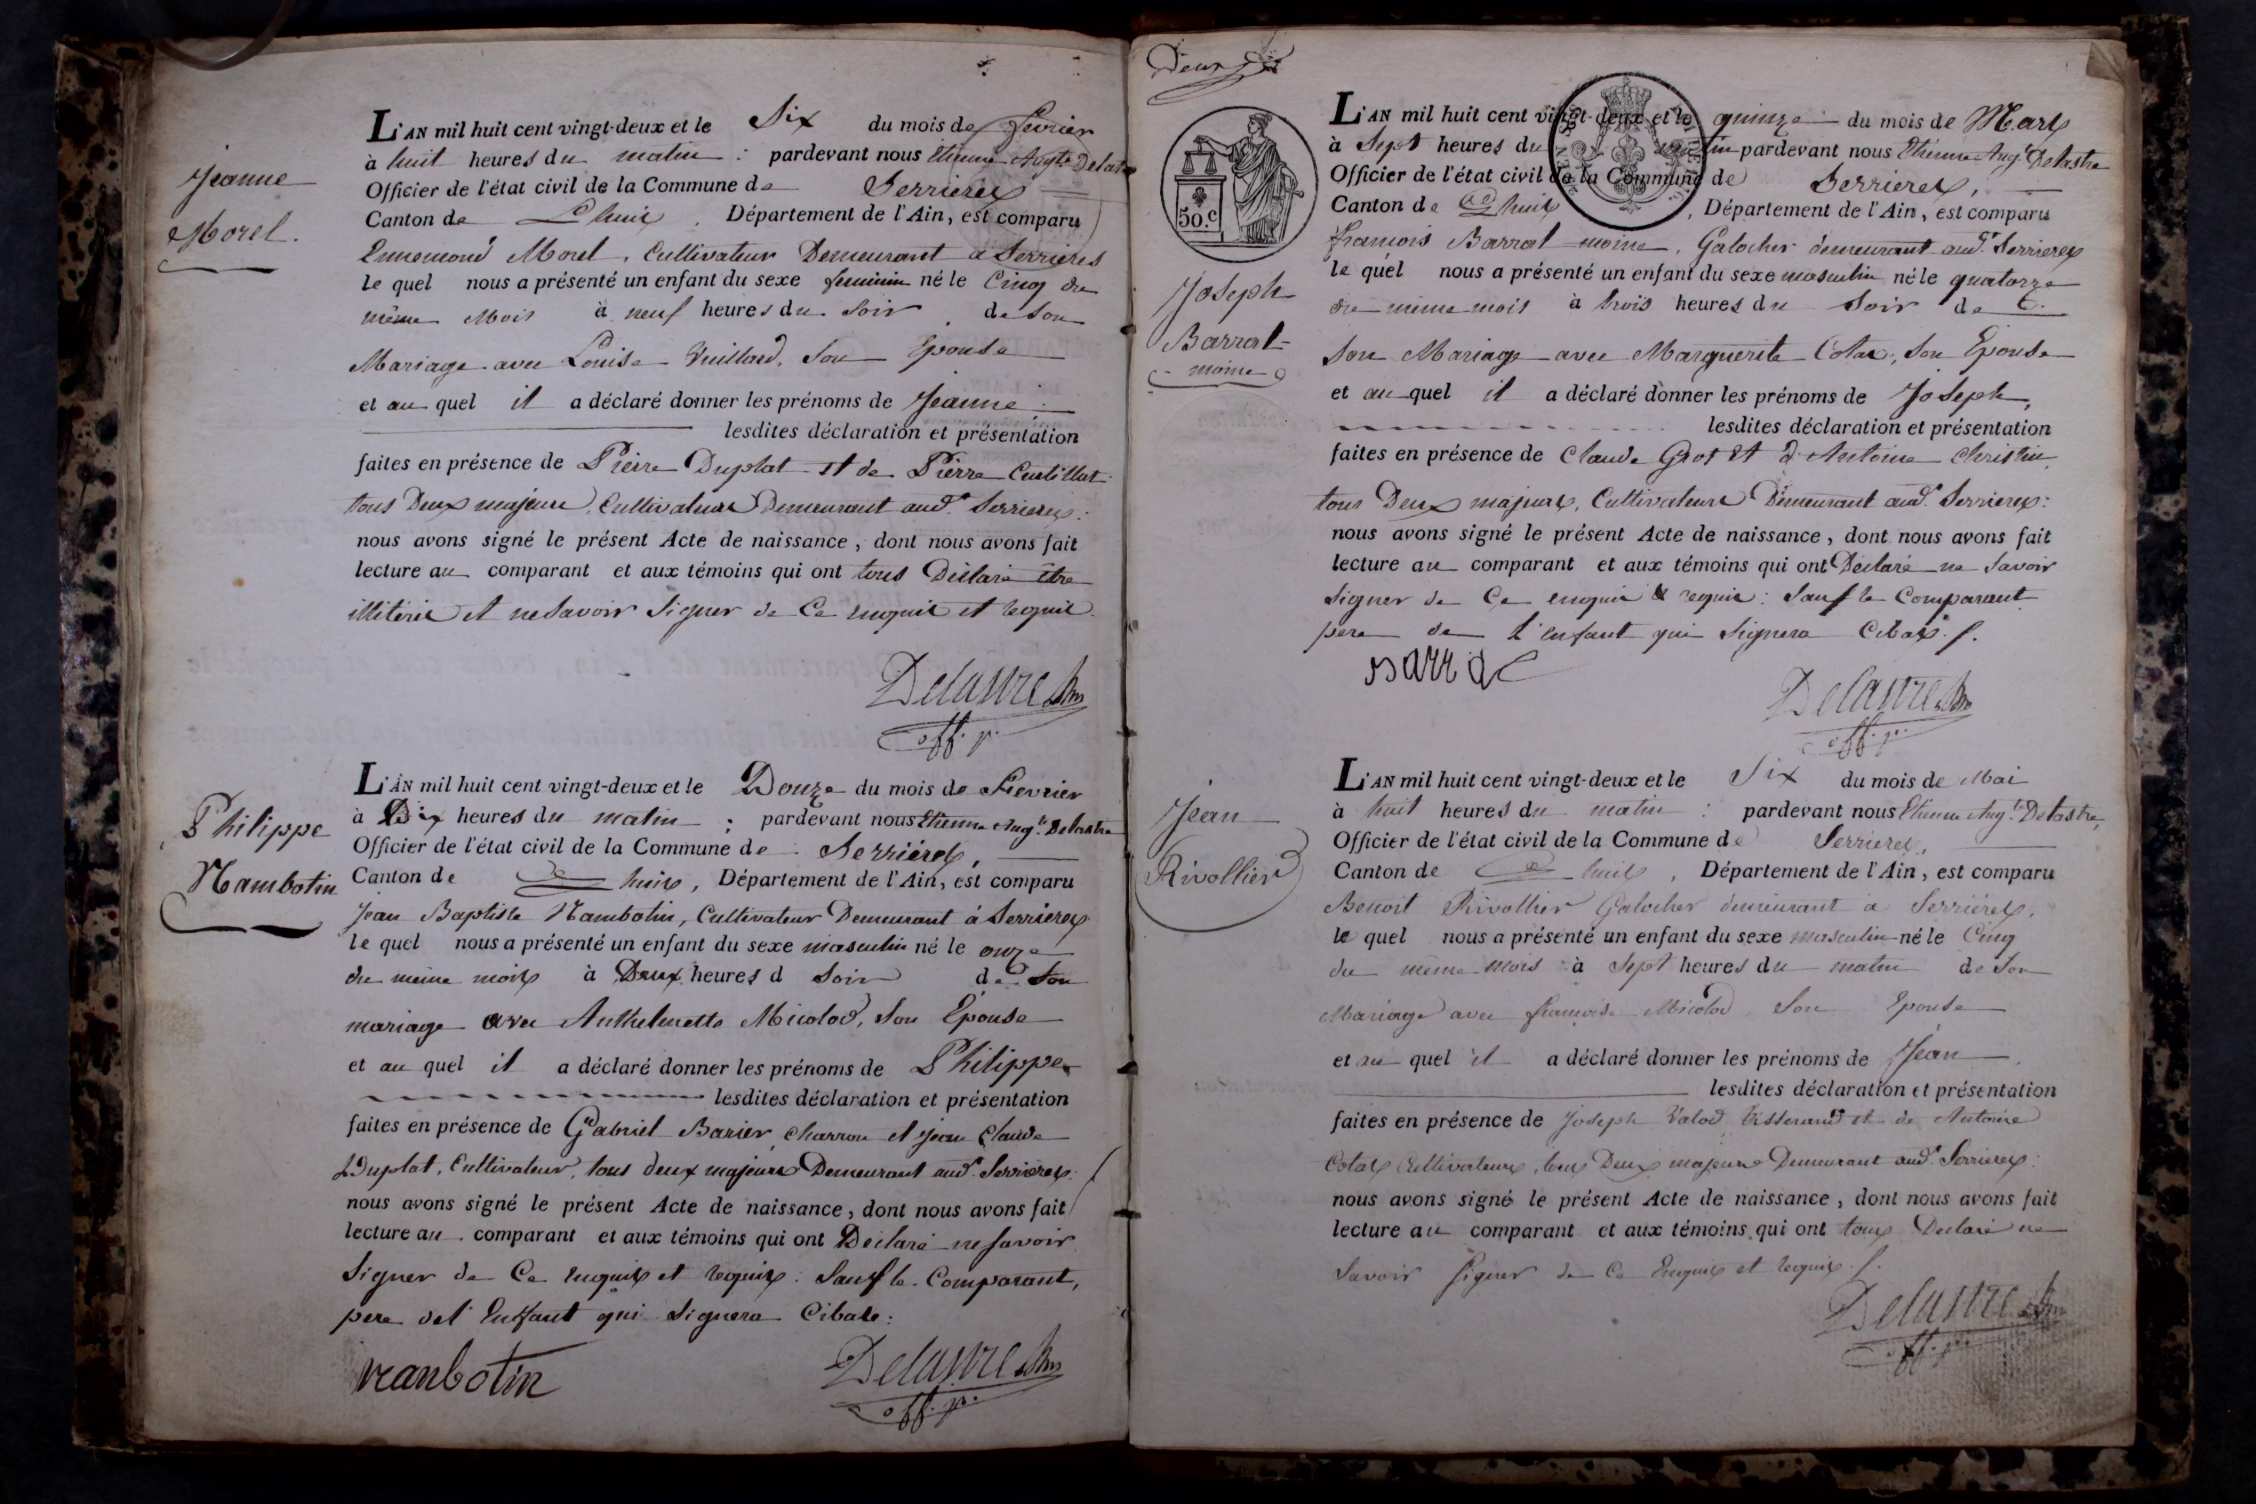 Jeanne
Morel.
L'AN mil huit cent vingt-deux et le Six du mois de fevrier
à huit heures du matin : pardevant nous Etienne Augte Delastre
Officier de l'état civil de la Commune de Serrieres
Canton de Lhuis, Département de l'Ain, est comparu
Ennemond Morel, Cultivateur Demeurant à Serrieres
le quel nous a présenté un enfant du sexe feminin né le Cinq du
même Mois à neuf heures du Soir de Son
Mariage avec Louise Vuillard, Son Epouse
et au quel il a déclaré donner les prénoms de Jeanne
lesdites déclaration et présentation
faites en présence de Pierre Duplat et de Pierre
tous Deux majeurs, Cultivateurs Demeurant aud.t Serrieres:
nous avons signé le présent Acte de naissance, dont nous avons fait
lecture au comparant et aux témoins qui ont tous Déclaré être
illiteres et ne Savoir Signer de Ce enquis et requis
Delastre
off. p.
Philippe
Nambotin
L'AN mil huit cent vingt-deux et le Douze du mois de Fievrier
à Dix heures du matin : pardevant nous Etienne Aug.te Delastre
Officier de l'état civil de la Commune de Serriéres,
Canton de Lhuis, Département de l'Ain, est comparu
Jean Baptiste Nambotin, Cultivateur Demeurant à Serrieres
le quel nous a présenté un enfant du sexe masculin né le onze
du meme mois à Deux heures d Soir de Son
mariage avec Anthelmette Micolod, Son Epouse
et au quel il a déclaré donner les prénoms de Philippe
lesdites déclaration et présentation
faites en présence de Gabriel Barier charron et Jean Claude
Duplat, Cultivateur, tous deux majeurs Demeurant aud.t Serrieres:
nous avons signé le présent Acte de naissance, dont nous avons fait
lecture au comparant et aux témoins qui ont Déclaré ne Savoir
Signer de Ce enquis et requis : Sauf le Comparant,
pere de l'Enfant qui Signera Cibate :
nanbotin
Delastre
off. p.
Deux
50.c
Joseph
Barrat
moine
L'AN mil huit cent vingt-deux et le quinze du mois de Mars
à Sept heures du matin pardevant nous Etienne Aug.t Delastre
Officier de l'état civil de la Commune de Serrieres,
Canton de Lhuis, Département de l'Ain, est comparu
françois Barrat moine, Galocher demeurant aud.t Serrieres
le quel nous a présenté un enfant du sexe masculin né le quatorze
du même mois à trois heures du Soir de
Son Mariage avec Marguerite Cotax, Son Epouse
et au quel il a déclaré donner les prénoms de Joseph,
lesdites déclaration et présentation
faites en présence de Claude Gros et d'Antoine Christin
tous Deux majeurs, Cultivateurs Demeurant aud.t Serrieres:
nous avons signé le présent Acte de naissance, dont nous avons fait
lecture au comparant et aux témoins qui ont Déclaré ne Savoir
Signer de Ce enquis & requis : Sauf le Comparant
pere de l'enfant qui Signera
Barrat
Delastre
off. p.
Jean
Rivollier
L'AN mil huit cent vingt-deux et le Six du mois de Mai
à huit heures du matin : pardevant nous Etienne Aug.t Delastre,
Officier de l'état civil de la Commune de Serrieres,
Canton de Lhuis, Département de l'Ain, est comparu
Benoit Rivollier Galocher demeurant a Serriéres,
le quel nous a présenté un enfant du sexe masculin né le Cinq
du même mois à Sept heures du matin de Son
Mariage avec françoise Micolod Son Epouse
et au quel il a déclaré donner les prénoms de Jean
lesdites déclaration et présentation
faites en présence de Joseph Valod tisserand et de Antoine
Cotax Cultivateurs, tous Deux majeurs Demeurant aud.t Serrieres:
nous avons signé le présent Acte de naissance, dont nous avons fait
lecture au comparant et aux témoins qui ont tous Declaré ne
Savoir Signer de Ce Enquis et requis
Delastre
off. p.